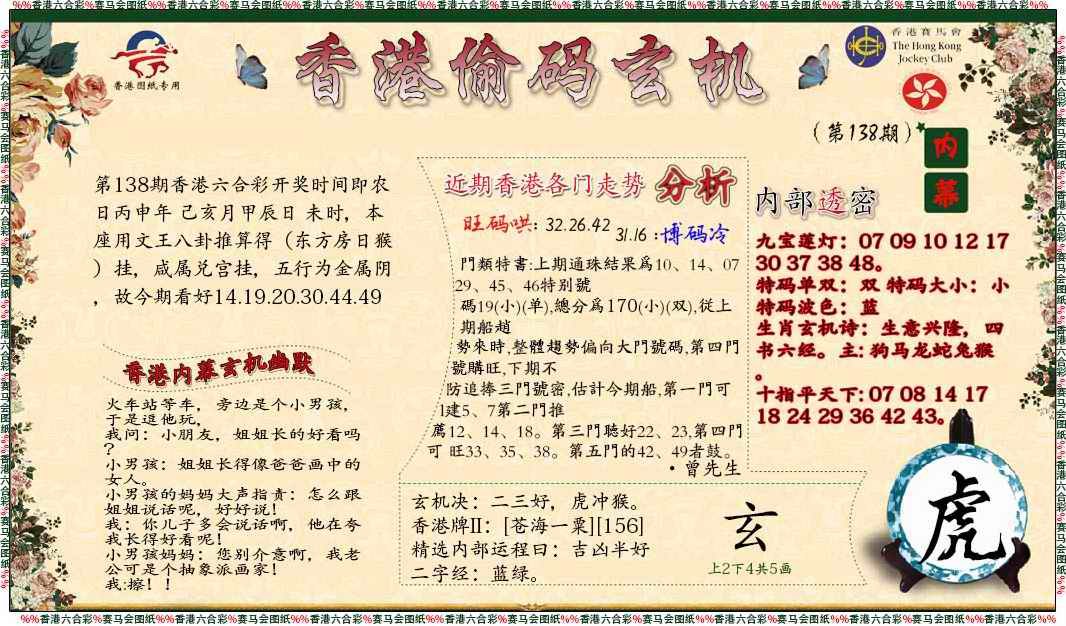 %%香港六合彩%赛马会图纸%%香港六合彩%赛马会图纸%%香港六合彩%赛马会图纸%%香港六合彩%赛马会图纸%%香港六合彩%赛马会图纸%%香港六合彩%%
香港图纸专用
香港偷码玄机
香港賽馬會
The Hong Kong
Jockey Club
(第138期)
内
幕
第138期香港六合彩开奖时间即农
日丙申年 己亥月甲辰日 未时，本
座用文王八卦推算得（东方房日猴
）挂，咸属兑宫挂，五行为金属阴
，故今期看好14.19.20.30.44.49
香港内幕玄机幽默
火车站等车，旁边是个小男孩，
于是逗他玩，
我问：小朋友，姐姐长的好看吗
？
小男孩：姐姐长得像爸爸画中的
女人。
小男孩的妈妈大声指责：怎么跟
姐姐说话呢，好好说！
我：你儿子多会说话啊，他在夸
我长得好看呢！
小男孩妈妈：您别介意啊，我老
公可是个抽象派画家！
我:擦！！
近期香港各门走势 分析
旺码哄: 32.26.42
31.16 :博码冷
門類特書:上期通珠結果爲10、14、07
29、45、46特别號
碼19(小)(单),總分爲170(小)(双),從上
期船趙
勢來時,整體趨勢偏向大門號碼,第四門
號購旺,下期不
防追捧三門號密,估計今期船,第一門可
1建5、7第二門推
薦12、14、18。第三門聽好22、23,第四門
可 旺33、35、38。第五門的42、49者鼓。
·曾先生
玄机决：二三好，虎冲猴。
香港牌II：[苍海一粟][156]
精选内部运程曰：吉凶半好
二字经：蓝绿。
玄
上2下4共5画
内部透密
九宝莲灯：07 09 10 12 17
30 37 38 48。
特码单双：双 特码大小：小
特码波色：蓝
生肖玄机诗：生意兴隆，四
书六经。主: 狗马龙蛇兔猴
。
十指平天下: 07 08 14 17
18 24 29 36 42 43。
虎
%%香港六合彩%赛马会图纸%%香港六合彩%赛马会图纸%%香港六合彩%赛马会图纸%%香港六合彩%赛马会图纸%%香港六合彩%赛马会图纸%%香港六合彩%%